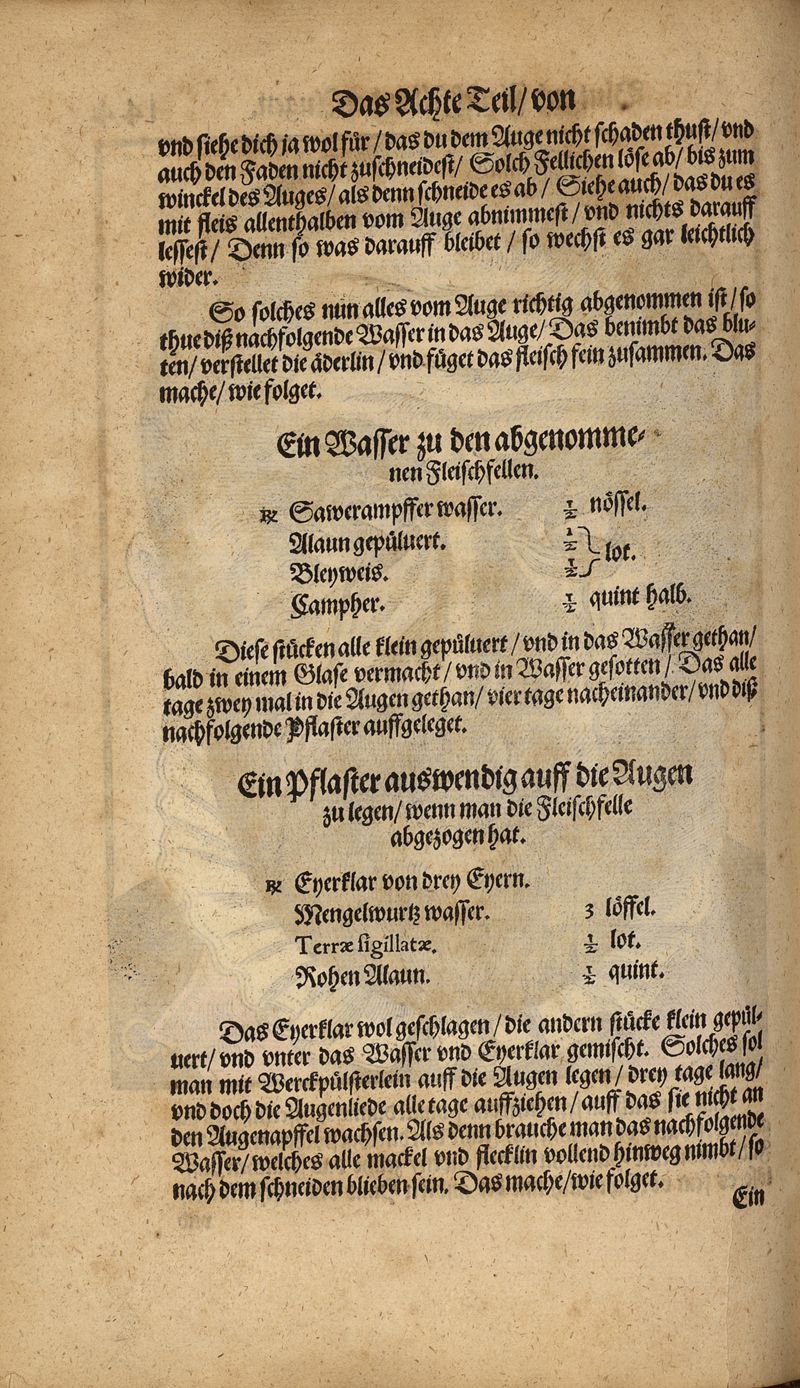 Das Achte Teil/von
vnd siehe dich ja wol für/das du dem Auge nicht schaden thust/vnd
auch den Faden nicht zuschneidest/ Solch Fellichen löse ab/ bis zum
winckel des Auges/als denn schneide es ab/ Siehe auch/das du es
mit fleis allenthalben vom Auge abnimmest/vnd nichts darauff
lessest/ Denn so was darauff bleibet/so wechst es gar leichtlich
wider.
So solches nun alles vom Auge richtig abgenommen ist/so
thue diß nachfolgende Wasser in das Auge/Das benimbt das blu⸗
ten/verstellet die äderlin/vnd füget das fleisch fein zusammen. Das
mache/wie folget.
Ein Wasser zu den abgenomme⸗
nen Fleischfellen.
℞ Sawerampffer wasser. ½ nössel.
Alaun gepüluert. ½
lot.
Bleyweis. ½
Campher. ½ quint halb.
Diese stücken alle klein gepüluert/vnd in das Wasser gethan/
bald in einem Glase vermacht/vnd in Wasser gesotten/ Das alle
tage zwey mal in die Augen gethan/vier tage nacheinander/vnd diß
nachfolgende Pflaster auffgeleget.
Ein Pflaster auswendig auff die Augen
zu legen/wenn man die Fleischfelle
abgezogen hat.
℞ Eyerklar von drey Eyern.
Mengelwurtz wasser. 3 löffel.
Terræ sigillatæ. ½ lot.
Rohen Alaun. ½ quint.
Das Eyerklar wol geschlagen/die andern stücke klein gepül⸗
uert/vnd vnter das Wasser vnd Eyerklar gemischt. Solches sol
man mit Werckpülsterlein auff die Augen legen/drey tage lang/
vnd doch die Augenliede alle tage auffziehen/auff das sie nicht an
den Augenapffel wachsen. Als denn brauche man das nachfolgende
Wasser/welches alle mackel vnd flecklin vollend hinweg nimbt/so
nach dem schneiden blieben sein. Das mache/wie folget.
Ein